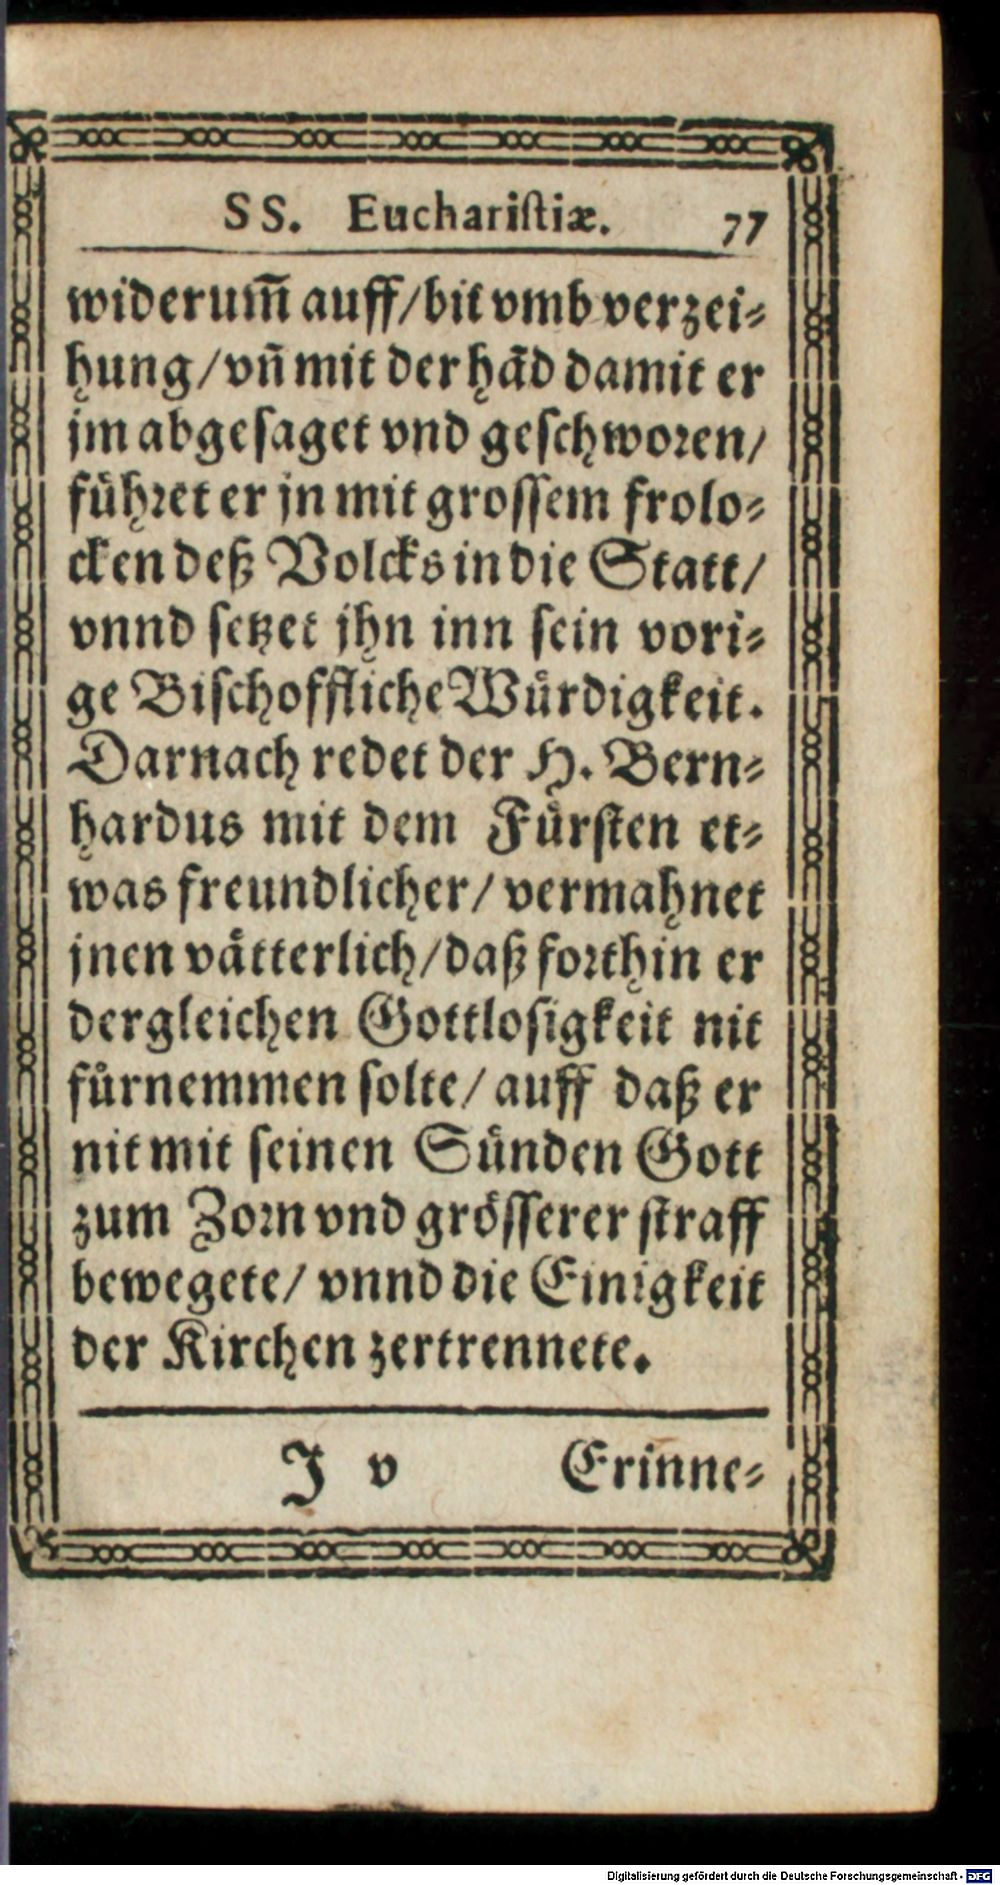 SS. Euchariſtiæ. 77
widerum̃ auff/bit vmb verzei⸗
hung/vñ mit der hãd damit er
jm abgeſaget vnd geſchworen/
fuͤhret er jn mit groſſem frolo⸗
cken deß Volcks in die Statt/
vnnd ſetzet jhn inn ſein vori⸗
ge Biſchoffliche Wuͤrdigkeit.
Darnach redet der H. Bern⸗
hardus mit dem Fuͤrſten et⸗
was freundlicher/ vermahnet
jnen vaͤtterlich/daß forthin er
dergleichen Gottloſigkeit nit
fuͤrnemmen ſolte/ auff daß er
nit mit ſeinen Suͤnden Gott
zum Zorn vnd groͤſſerer ſtraff
bewegete/ vnnd die Einigkeit
der Kirchen zertrennete.
J v Erinne⸗
Digitalisierung gefördert durch die Deutsche Forschungsgemeinschaft - DFG